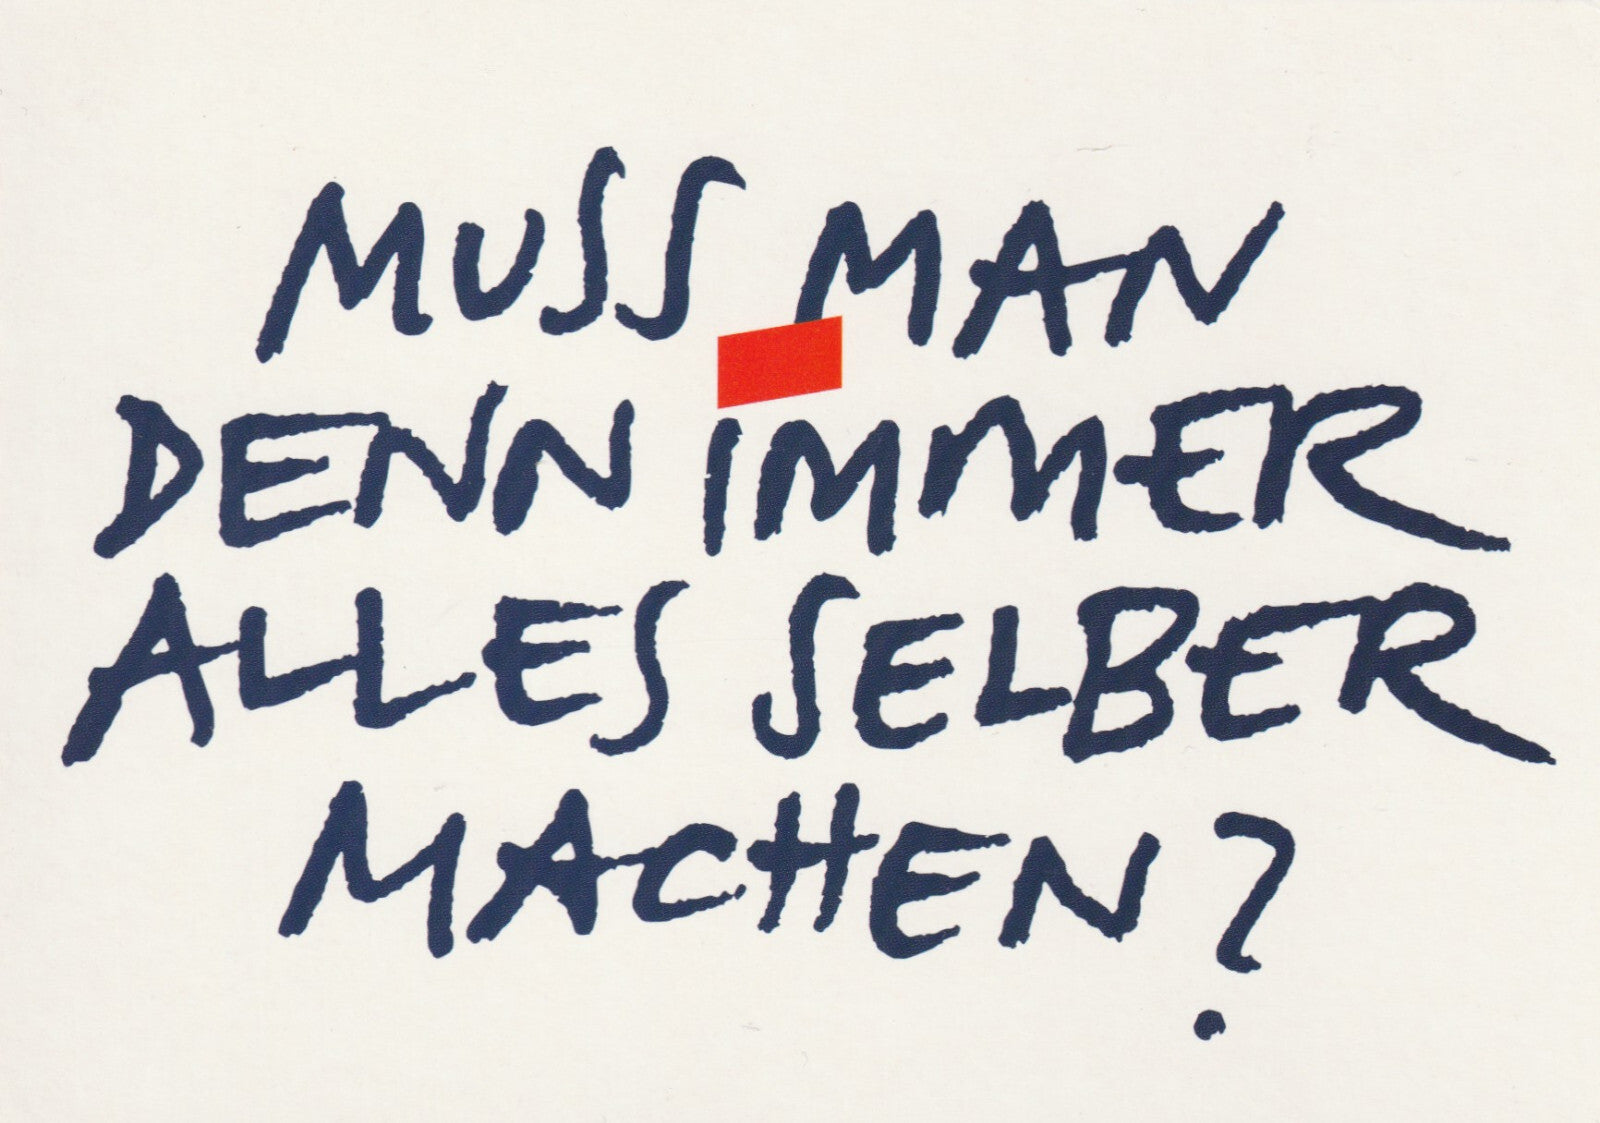 MUSS MAN
DENN IMMER
ALLES SELBER
MACHEN?